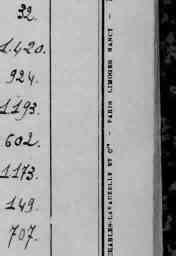 32.
1.420.
924.
1193.
602.
1173.
149.
707.
CHARLES-LAVAUZELLE ET Cie — PARIS LIMOGES NANCY —